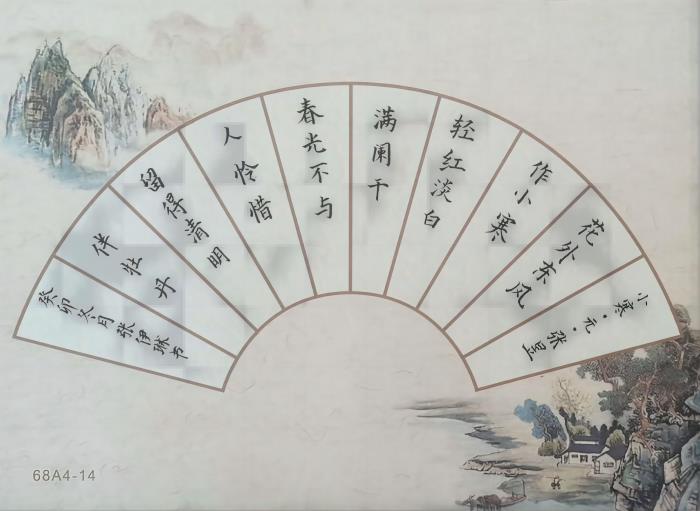 小寒·元·张昱
花外东风
作小寒
轻红淡白
满阑干
春光不与
人怜惜
留得清明
伴牡丹
癸卯冬月张伊琳书
68A4-14